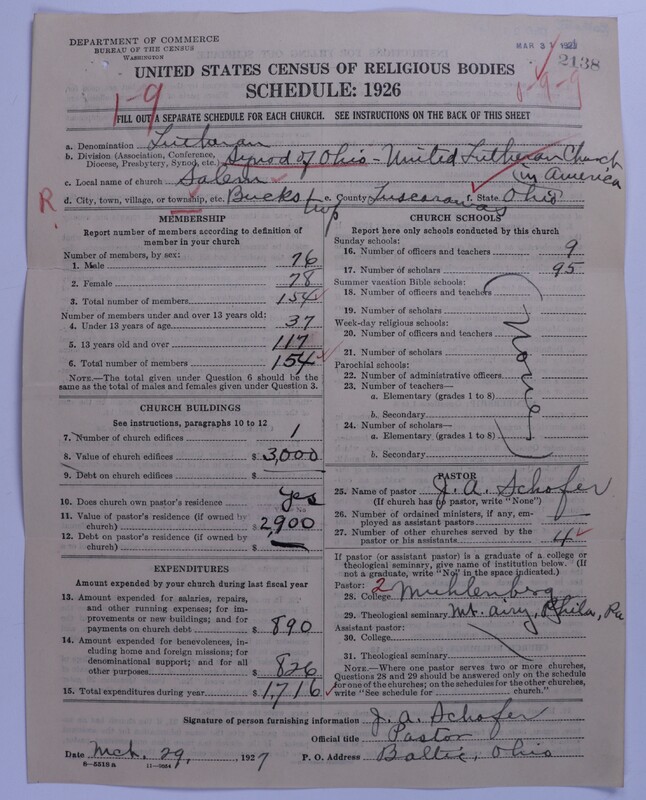 DEPARTMENT OF COMMERCE
BUREAU OF THE CENSUS
WASHINGTON
MAR 31 1927
2138
UNITED STATES CENSUS OF RELIGIOUS BODIES
SCHEDULE: 1926
1-9
1-9-9
FILL OUT A SEPARATE SCHEDULE FOR EACH CHURCH. SEE INSTRUCTIONS ON THE BACK OF THIS SHEET
a. Denomination Lutheran
b. Division (Association, Conference, Diocese, Presbytery, Synod, etc.) Synod of Ohio - United Lutheran Church in America
c. Local name of church Salem
R
d. City, town, village, or township, etc. Bucks twp e. County Tuscarawas f. State Ohio
MEMBERSHIP
Report number of members according to definition of
member in your church
Number of members, by sex:
1. Male 76
2. Female 78
3. Total number of members 154
Number of members under and over 13 years old:
4. Under 13 years of age 37
5. 13 years old and over 117
6. Total number of members 154
NOTE.—The total given under Question 6 should be the
same as the total of males and females given under Question 3.
CHURCH BUILDINGS
See instructions, paragraphs 10 to 12
7. Number of church edifices 1
8. Value of church edifices $ 3,000
9. Debt on church edifices $
10. Does church own pastor's residence Yes
11. Value of pastor's residence (if owned by
church) $ 2,900
12. Debt on pastor's residence (if owned by
church) $
EXPENDITURES
Amount expended by your church during last fiscal year
13. Amount expended for salaries, repairs,
and other running expenses; for im-
provements or new buildings; and for
payments on church debt $ 890
14. Amount expended for benevolences, in-
cluding home and foreign missions; for
denominational support; and for all
other purposes $ 826
15. Total expenditures during year $ 1,716
CHURCH SCHOOLS
Report here only schools conducted by this church
Sunday schools:
16. Number of officers and teachers 9
17. Number of scholars 95
Summer vacation Bible schools:
18. Number of officers and teachers
19. Number of scholars
Week-day religious schools:
20. Number of officers and teachers
21. Number of scholars
Parochial schools:
22. Number of administrative officers
23. Number of teachers—
a. Elementary (grades 1 to 8)
b. Secondary
24. Number of scholars—
a. Elementary (grades 1 to 8)
b. Secondary
None
PASTOR
25. Name of pastor J. A. Schofer
(If church has no pastor, write "None")
26. Number of ordained ministers, if any, em-
ployed as assistant pastors
27. Number of other churches served by the
pastor or his assistants 4
If pastor (or assistant pastor) is a graduate of a college or
theological seminary, give name of institution below. (If
not a graduate, write "No" in the space indicated.)
Pastor: 2
28. College Muhlenberg
29. Theological seminary Mt. Airy, Phila, Pa
Assistant pastor:
30. College
31. Theological seminary
NOTE.—Where one pastor serves two or more churches,
Questions 28 and 29 should be answered only on the schedule
for one of the churches; on the schedules for the other churches,
write "See schedule for church."
Signature of person furnishing information J. A. Schofer
Official title Pastor
Date Mch. 29, 1927 P. O. Address Baltic, Ohio
8-5518a 11-9864